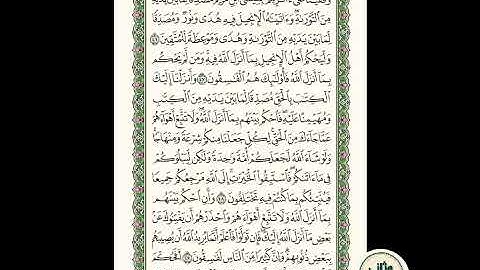 مِنَ ٱلتَّوْرَىٰةِ وَءَاتَيْنَٰهُ ٱلْإِنجِيلَ فِيهِ هُدًى وَنُورٌ وَمُصَدِّقًا
لِّمَا بَيْنَ يَدَيْهِ مِنَ ٱلتَّوْرَىٰةِ وَهُدًى وَمَوْعِظَةً لِّلْمُتَّقِينَ ٤٦
وَلْيَحْكُمْ أَهْلُ ٱلْإِنجِيلِ بِمَآ أَنزَلَ ٱللَّهُ فِيهِ وَمَن لَّمْ يَحْكُم
بِمَآ أَنزَلَ ٱللَّهُ فَأُو۟لَٰٓئِكَ هُمُ ٱلْفَٰسِقُونَ ٤٧ وَأَنزَلْنَآ إِلَيْكَ
ٱلْكِتَٰبَ بِٱلْحَقِّ مُصَدِّقًا لِّمَا بَيْنَ يَدَيْهِ مِنَ ٱلْكِتَٰبِ
وَمُهَيْمِنًا عَلَيْهِ فَٱحْكُم بَيْنَهُم بِمَآ أَنزَلَ ٱللَّهُ وَلَا تَتَّبِعْ أَهْوَآءَهُمْ
عَمَّا جَآءَكَ مِنَ ٱلْحَقِّ لِكُلٍّ جَعَلْنَا مِنكُمْ شِرْعَةً وَمِنْهَاجًا
وَلَوْ شَآءَ ٱللَّهُ لَجَعَلَكُمْ أُمَّةً وَٰحِدَةً وَلَٰكِن لِّيَبْلُوَكُمْ
فِى مَآ ءَاتَىٰكُمْ فَٱسْتَبِقُوا۟ ٱلْخَيْرَٰتِ إِلَى ٱللَّهِ مَرْجِعُكُمْ جَمِيعًا
فَيُنَبِّئُكُم بِمَا كُنتُمْ فِيهِ تَخْتَلِفُونَ ٤٨ وَأَنِ ٱحْكُم بَيْنَهُم
بِمَآ أَنزَلَ ٱللَّهُ وَلَا تَتَّبِعْ أَهْوَآءَهُمْ وَٱحْذَرْهُمْ أَن يَفْتِنُوكَ عَنۢ
بَعْضِ مَآ أَنزَلَ ٱللَّهُ إِلَيْكَ فَإِن تَوَلَّوْا۟ فَٱعْلَمْ أَنَّمَا يُرِيدُ ٱللَّهُ أَن يُصِيبَهُم
بِبَعْضِ ذُنُوبِهِمْ وَإِنَّ كَثِيرًا مِّنَ ٱلنَّاسِ لَفَٰسِقُونَ ٤٩ أَفَحُكْمَ